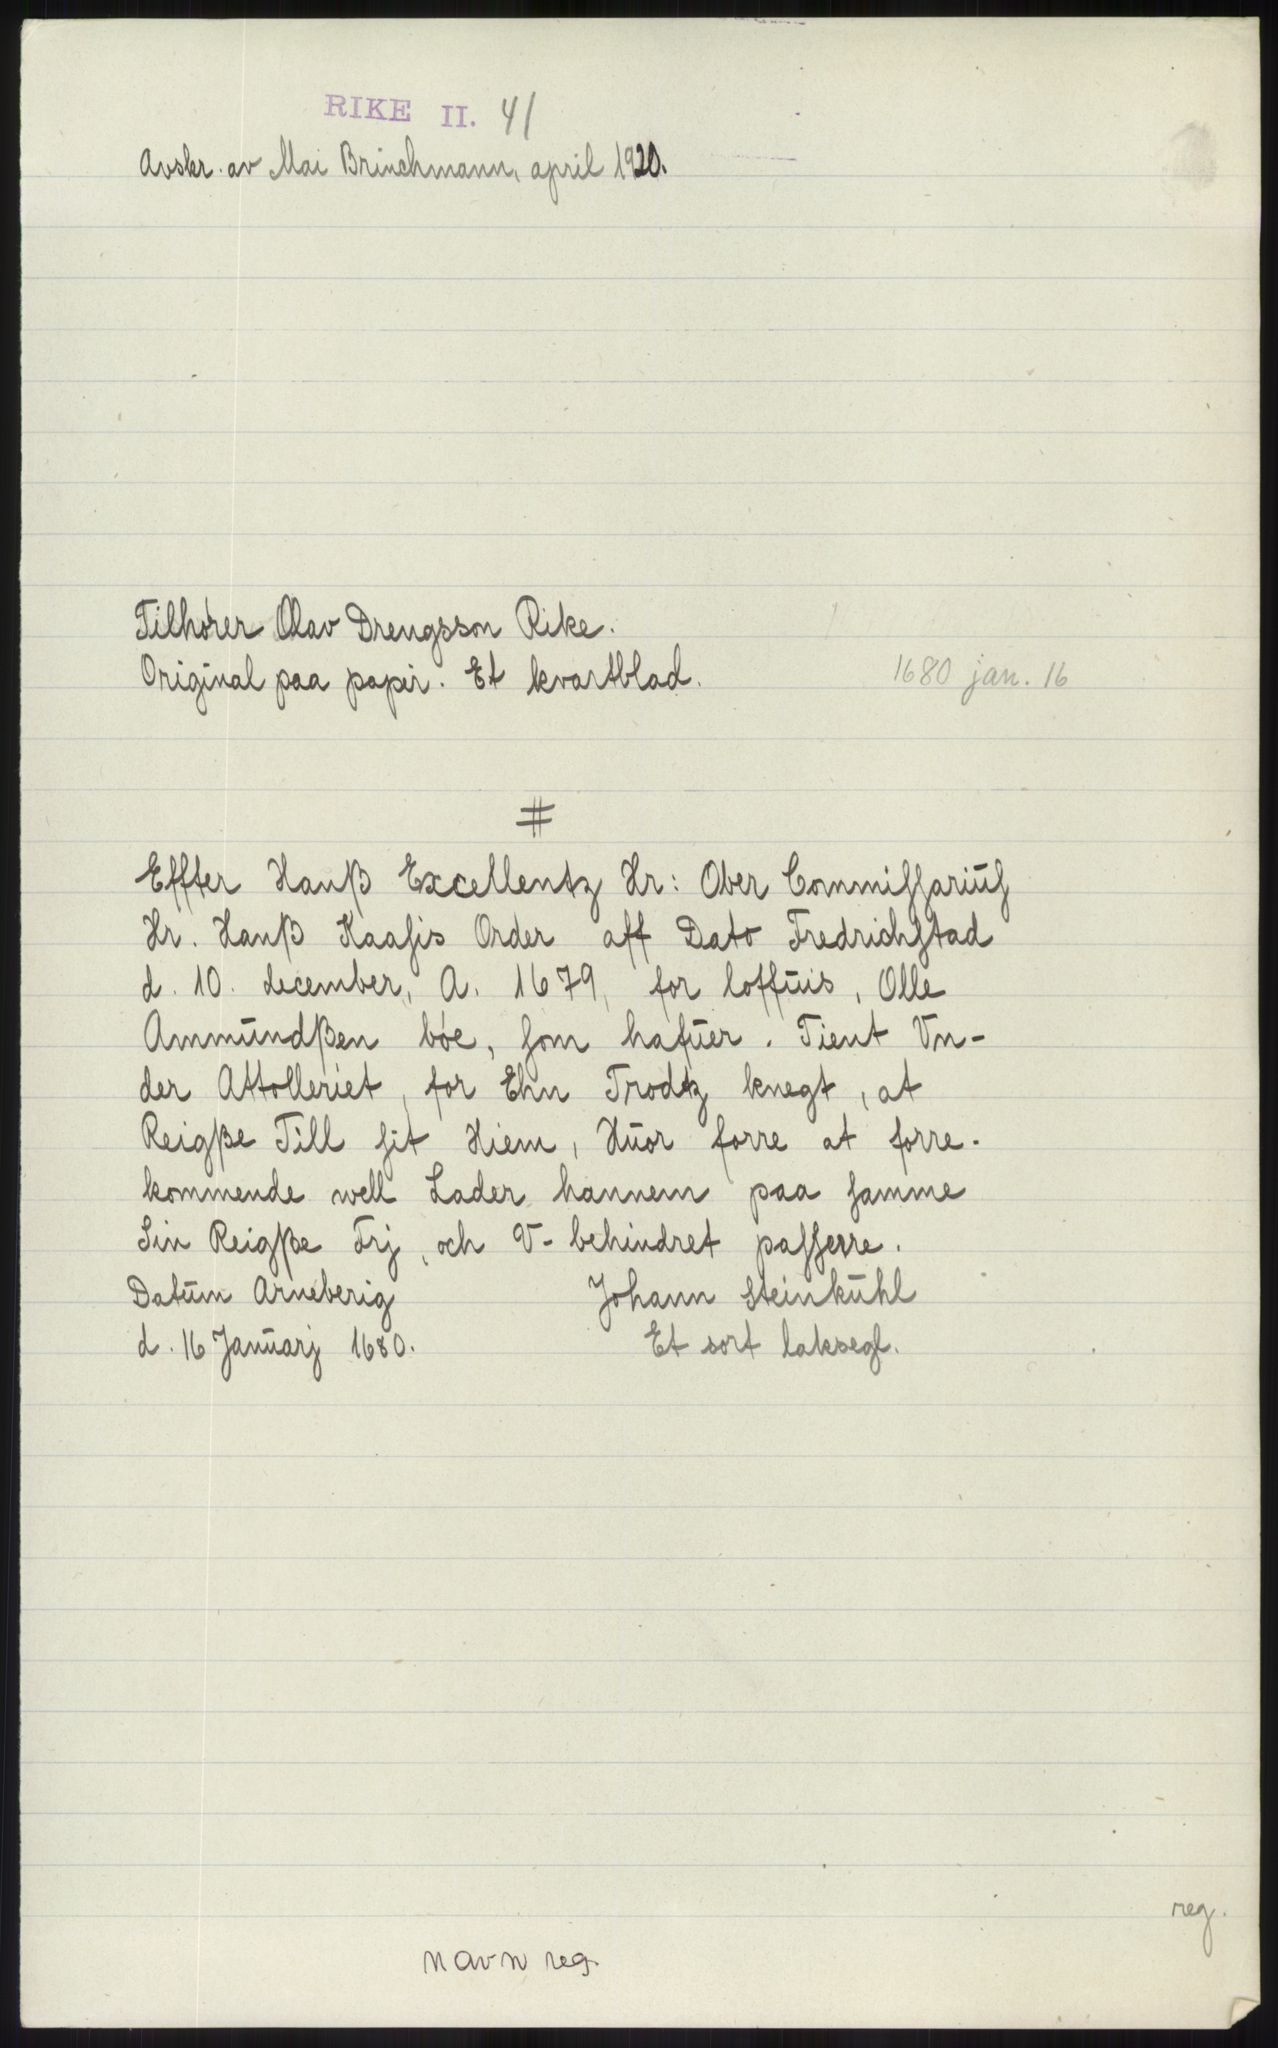 RIKE II. 41
Avskr. av Mai Brinchmann, april 1920.
Tilhører Olav Drengsson Rike.
Original paa papir. Et kvartblad.
1680 jan. 16
#
Effter Hanß Excellentz Hr: Ober Commissariūs
Hr. Hanß Kaasis Order aff Dato Fredrichstad
d. 10. december, A. 1679, for loffūis, Olle
Ammūndßen bøe, som hafūer. Tient Vn-
der Attolleriet, for Ehn Trodtz knegt, at
Reigße Till sit Hiem, Hūor forre at forre-
kommende well Lader hannem paa samme
Sin Reigße Frj, och V- behindret passerre.
Datūm Arneberig
Johann Steinkūhl
d. 16 Janūarj 1680.
Et sort laksegl.
reg.
navn reg.